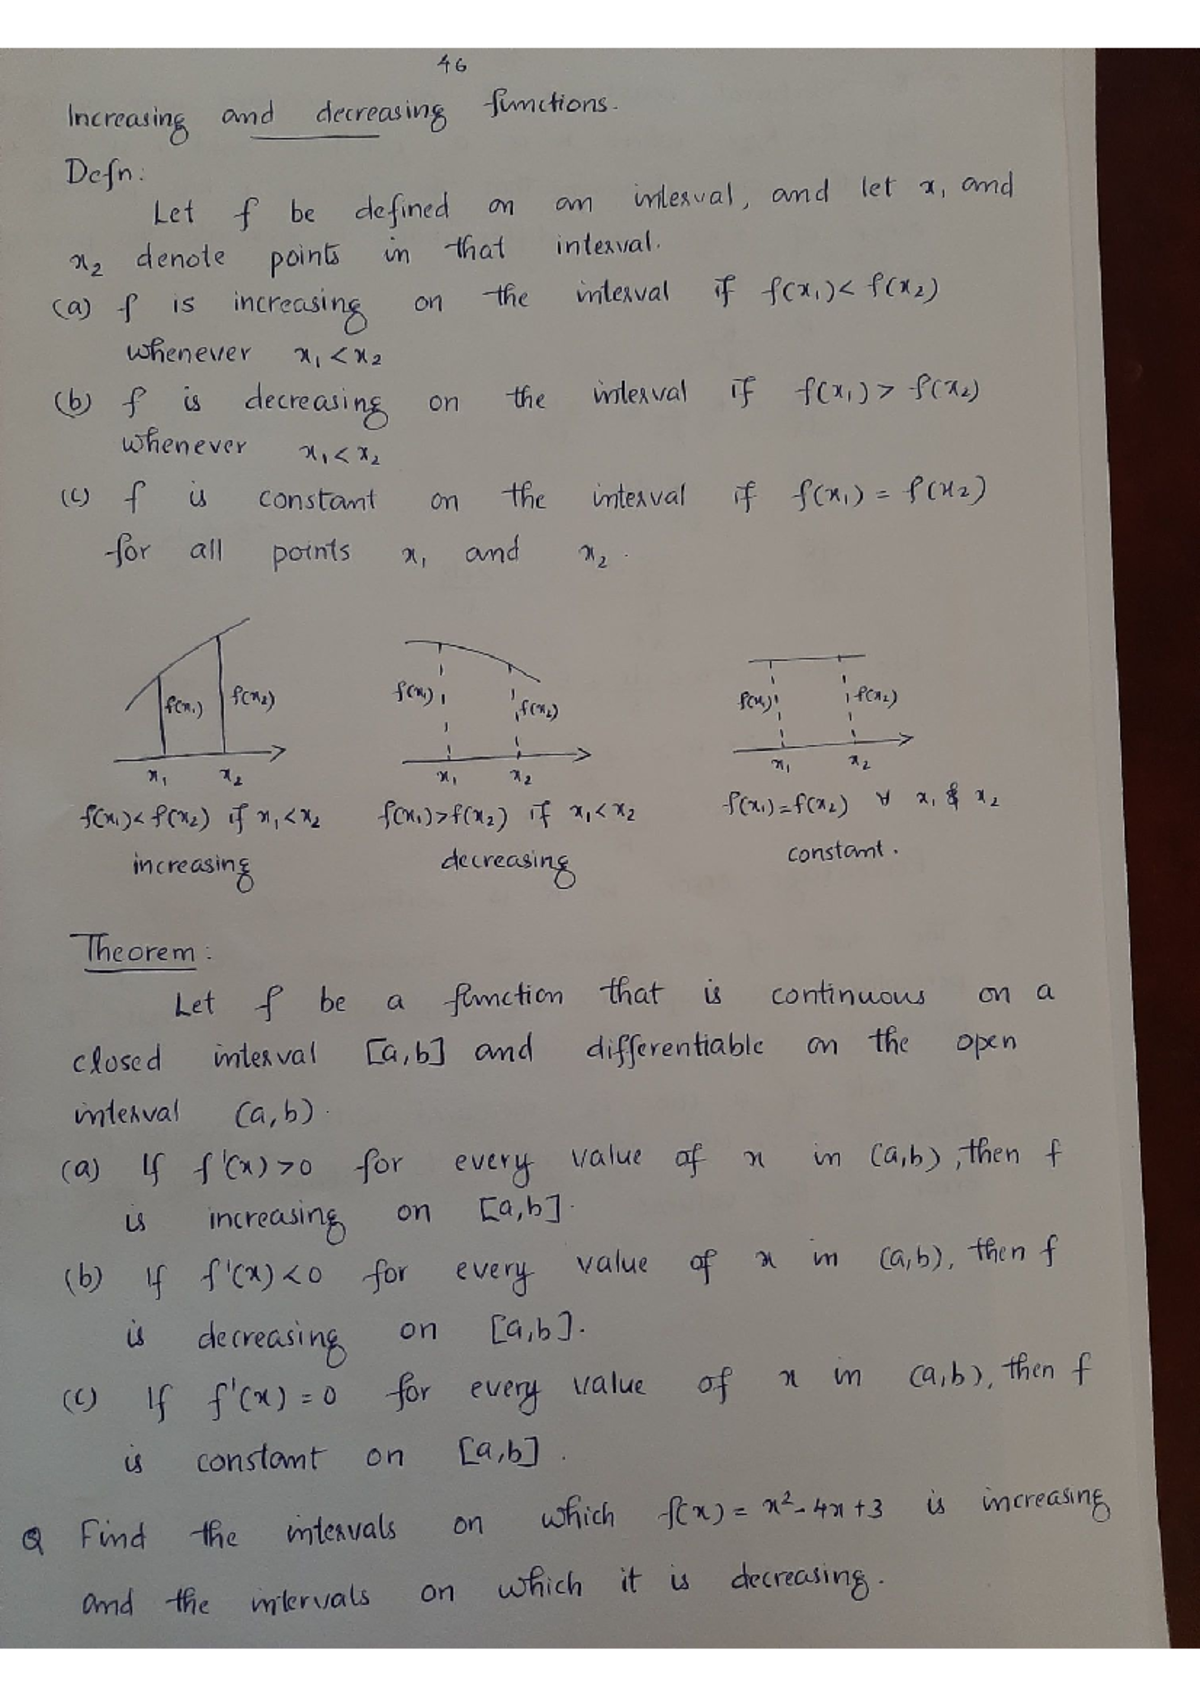 46
Increasing and decreasing functions.
Defn:
Let f be defined on an interval, and let x₁ and
x₂ denote points in that interval.
(a) f is increasing on the interval if f(x₁) < f(x₂)
whenever x₁ < x₂
(b) f is decreasing on the interval if f(x₁) > f(x₂)
whenever x₁ < x₂
(c) f is constant on the interval if f(x₁) = f(x₂)
for all points x₁ and x₂.
f(x₁) f(x₂) f(x₁) f(x₂) f(x₁) f(x₂)
x₁ x₂ x₁ x₂ x₁ x₂
f(x₁) < f(x₂) if x₁ < x₂ f(x₁) > f(x₂) if x₁ < x₂ f(x₁) = f(x₂) ∀ x₁ & x₂
increasing decreasing constant.
Theorem:
Let f be a function that is continuous on a
closed interval [a,b] and differentiable on the open
interval (a,b).
(a) If f'(x) > 0 for every value of x in (a,b), then f
is increasing on [a,b].
(b) If f'(x) < 0 for every value of x in (a,b), then f
is decreasing on [a,b].
(c) If f'(x) = 0 for every value of x in (a,b), then f
is constant on [a,b].
Q Find the intervals on which f(x) = x² - 4x + 3 is increasing
and the intervals on which it is decreasing.